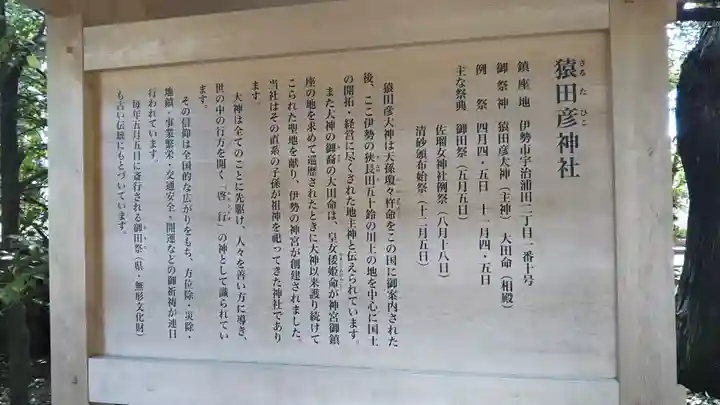 猿田彦神社
さるたひこ
鎮座地 伊勢市宇治浦田二丁目一番十号
御祭神 猿田彦大神(主神) 大田命(相殿)
例祭 四月四・五日 十一月四・五日
主な祭典 御田祭(五月五日)
佐瑠女神社例祭(八月十八日)
清砂頒布始祭(十二月五日)
猿田彦大神は天孫瓊々杵命をこの国に御案内された
後、ここ伊勢の狭長田五十鈴の川上の地を中心に国土
の開拓・経営に尽くされた地主神と伝えられています。
また大神の御裔の大田命は、皇女倭姫命が神宮御鎮
座の地を求めて巡歴されたときに大神以来護り続けて
こられた聖地を献り、伊勢の神宮が創建されました。
当社はその直系の子孫が祖神を祀ってきた神社であり
ます。
大神は全てのことに先駆け、人々を善い方に導き、
世の中の行方を開く「啓行」の神として識られてい
ます。
その信仰は全国的な広がりをもち、方位除・災除・
地鎮・事業繁栄・交通安全・開運などの御祈祷が連日
行われています。
毎年五月五日に斎行される御田祭(県・無形文化財)
も古い伝統にもとづいています。